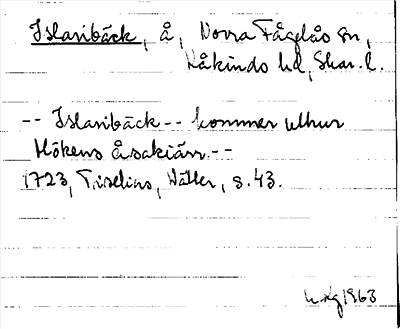 Islaribäck, å, Norra Fågelås sn,
Kåkinds hd, Skar. l.
-- Islaribäck -- kommer uthur
Hökens åsakiärr. --
1723, Tiselius, Wätter, s. 43.
1963